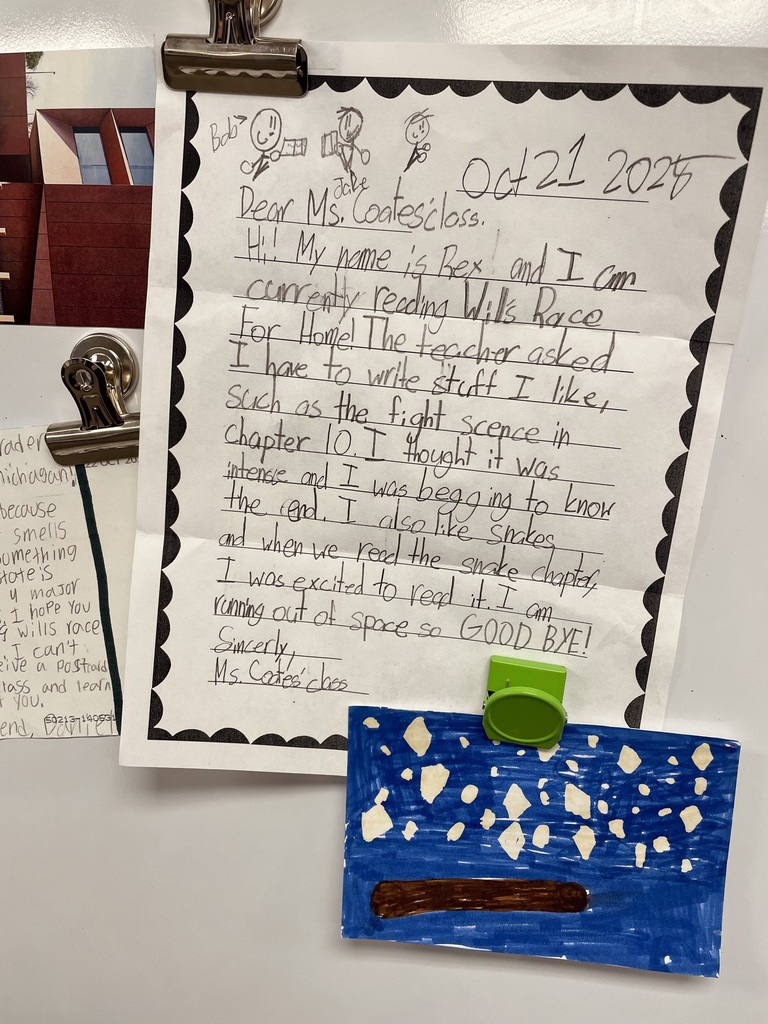 Bob→
Jake
Oct 21 2025
Dear Ms. Coates' class.
Hi! My name is Rex and I am
currently reading Will's Race
For Home! The teacher asked
I have to write stuff I like,
such as the fight scence in
chapter 10. I thought it was
intense and I was begging to know
the end. I also like snakes
and when we read the snake chapter,
I was excited to read it. I am
running out of space so GOOD BYE!
Sincerely,
Ms. Coates' class
rader
nichagan!
because
smells
omething
tate is
y major
I hope you
wills race
I can't
eive a postcard
lass and learn
t you.
end,